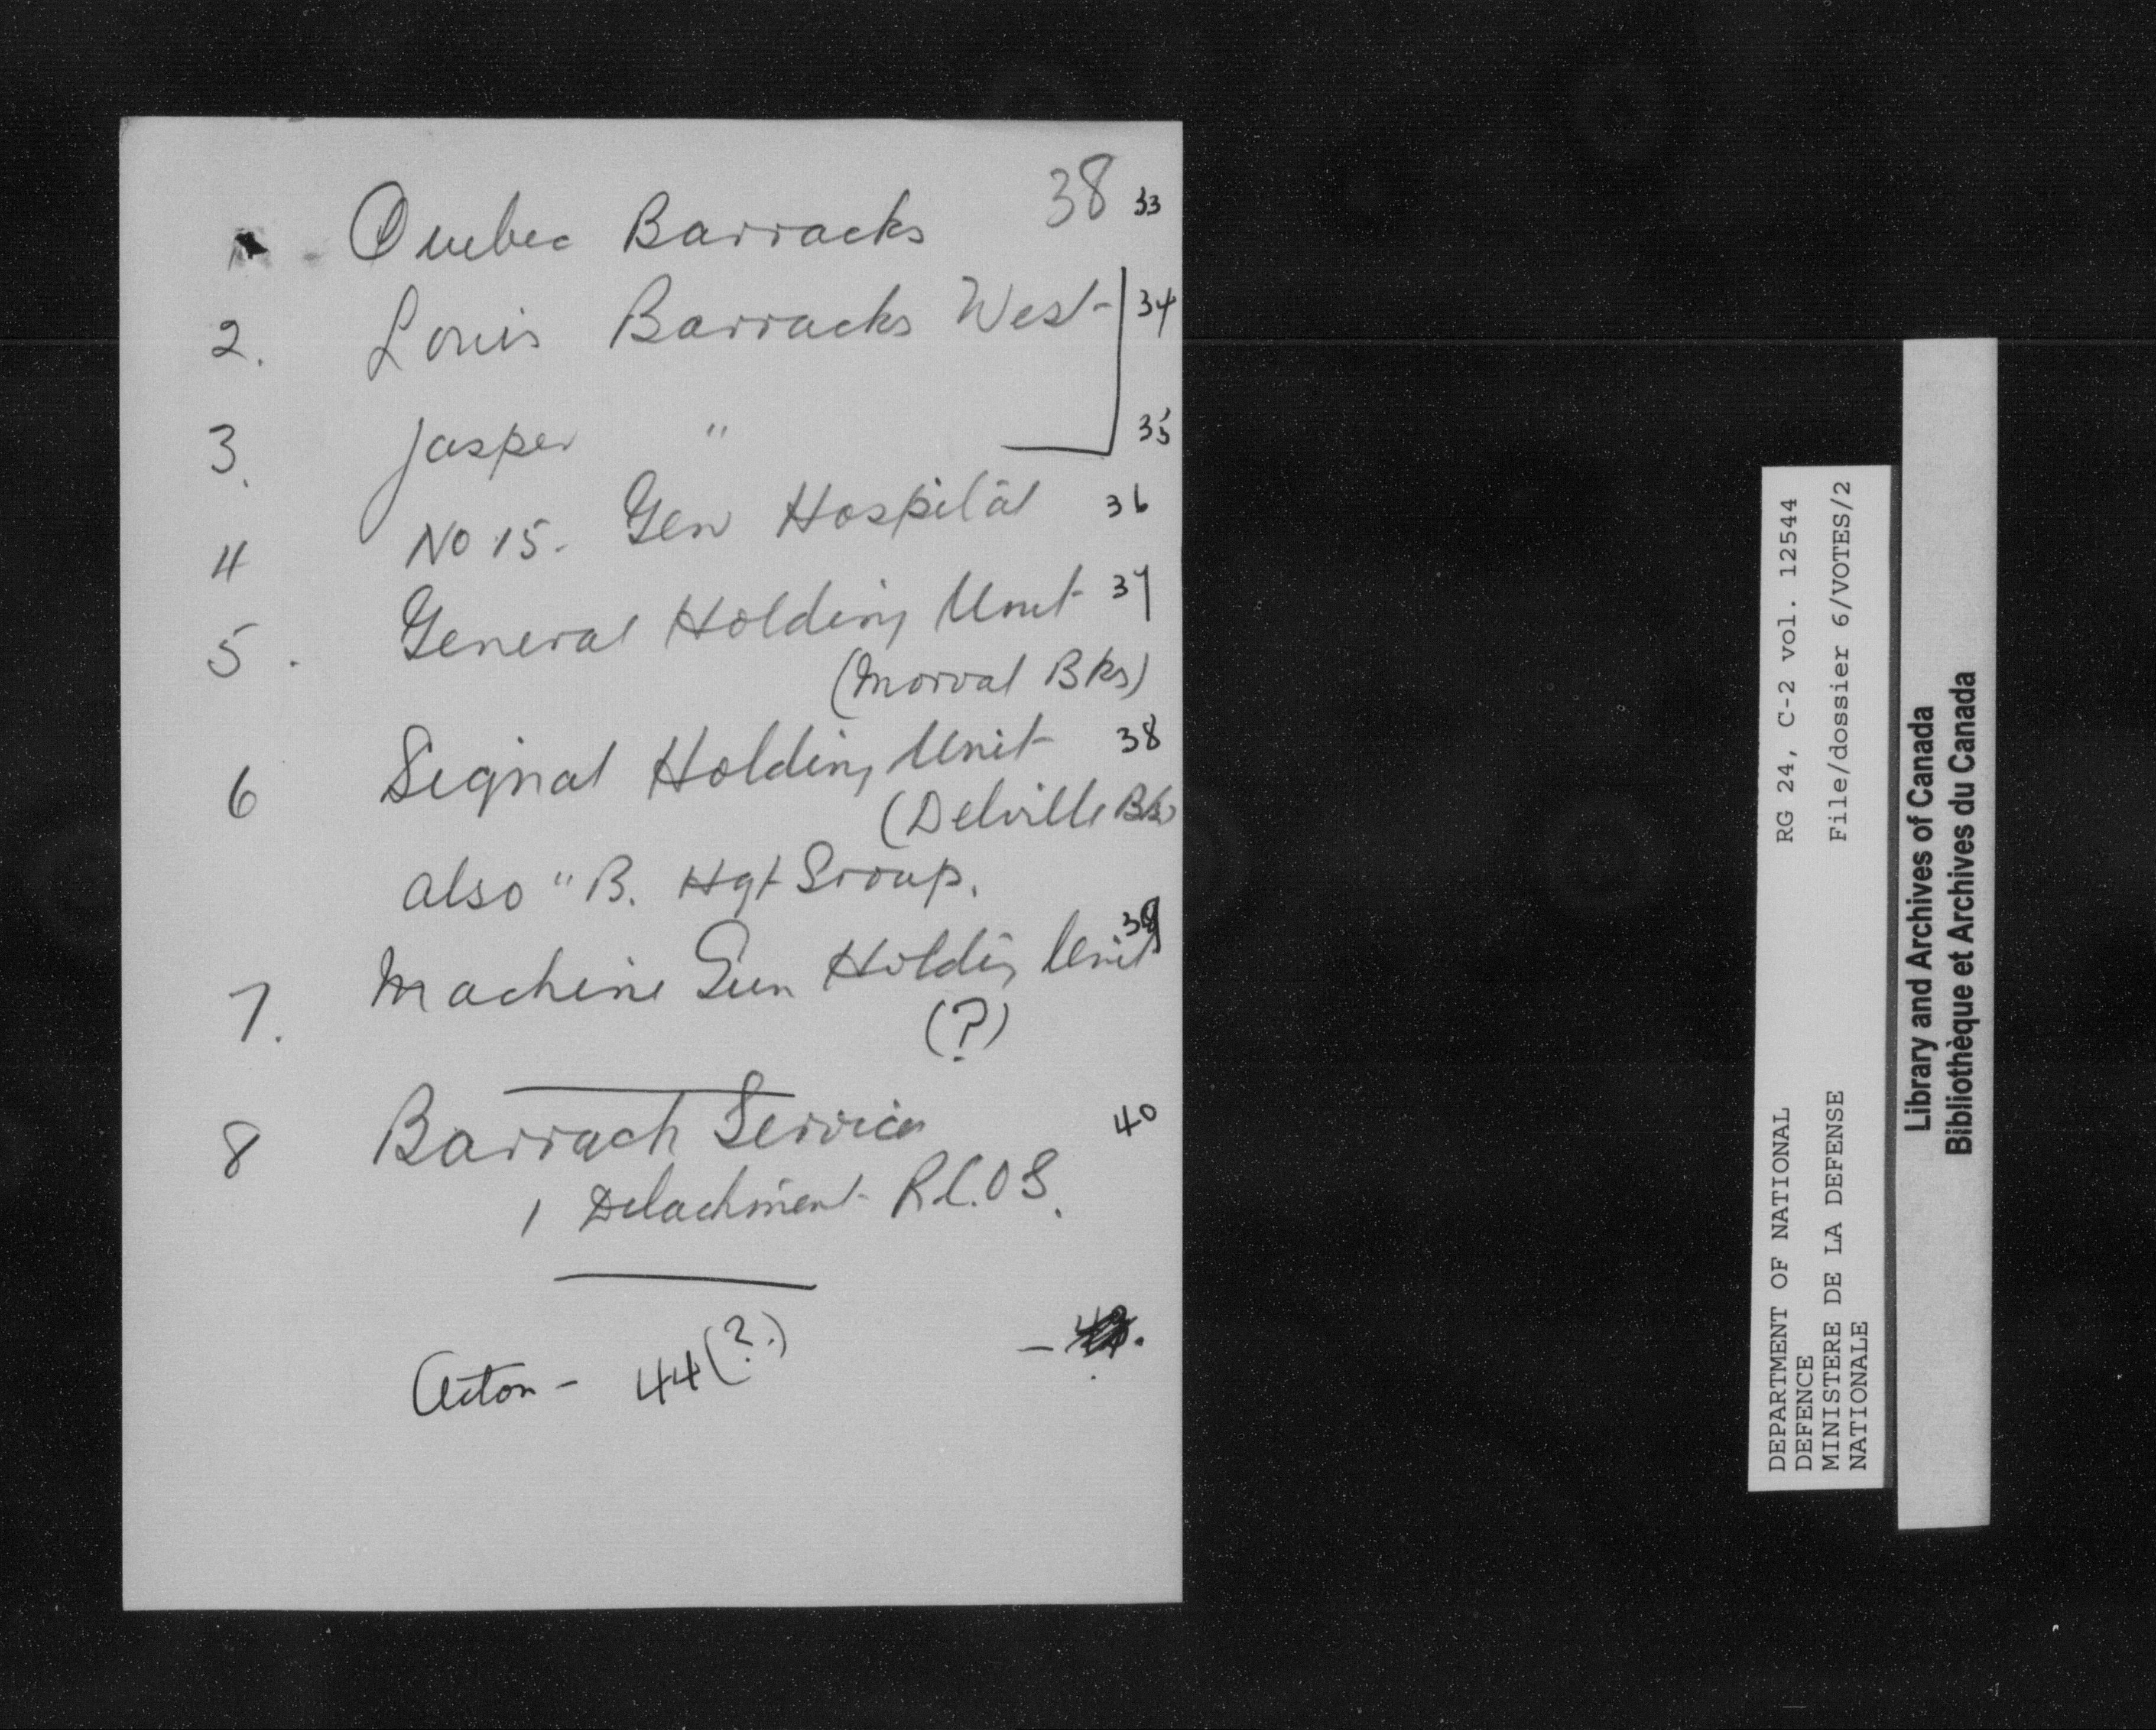 38
Quebec Barracks 33
2. Louis Barracks West 34
3. Jasper " 35
4 No 15. Gen Hospital 36
5. General Holding Unit 37
(Morval Bks)
6 Signal Holding Unit 38
(Delville Bks)
also "B. Hqt Group.
7. Machine Gun Holding Unit 39
(?)
8 Barrack Services 40
1 Detachment R.C.O.S.
Acton - 44 (?.) -
RG 24, C-2 vol. 12544
File/dossier 6/VOTES/2
DEPARTMENT OF NATIONAL
DEFENCE
MINISTERE DE LA DEFENSE
NATIONALE
Library and Archives of Canada
Bibliothèque et Archives du Canada